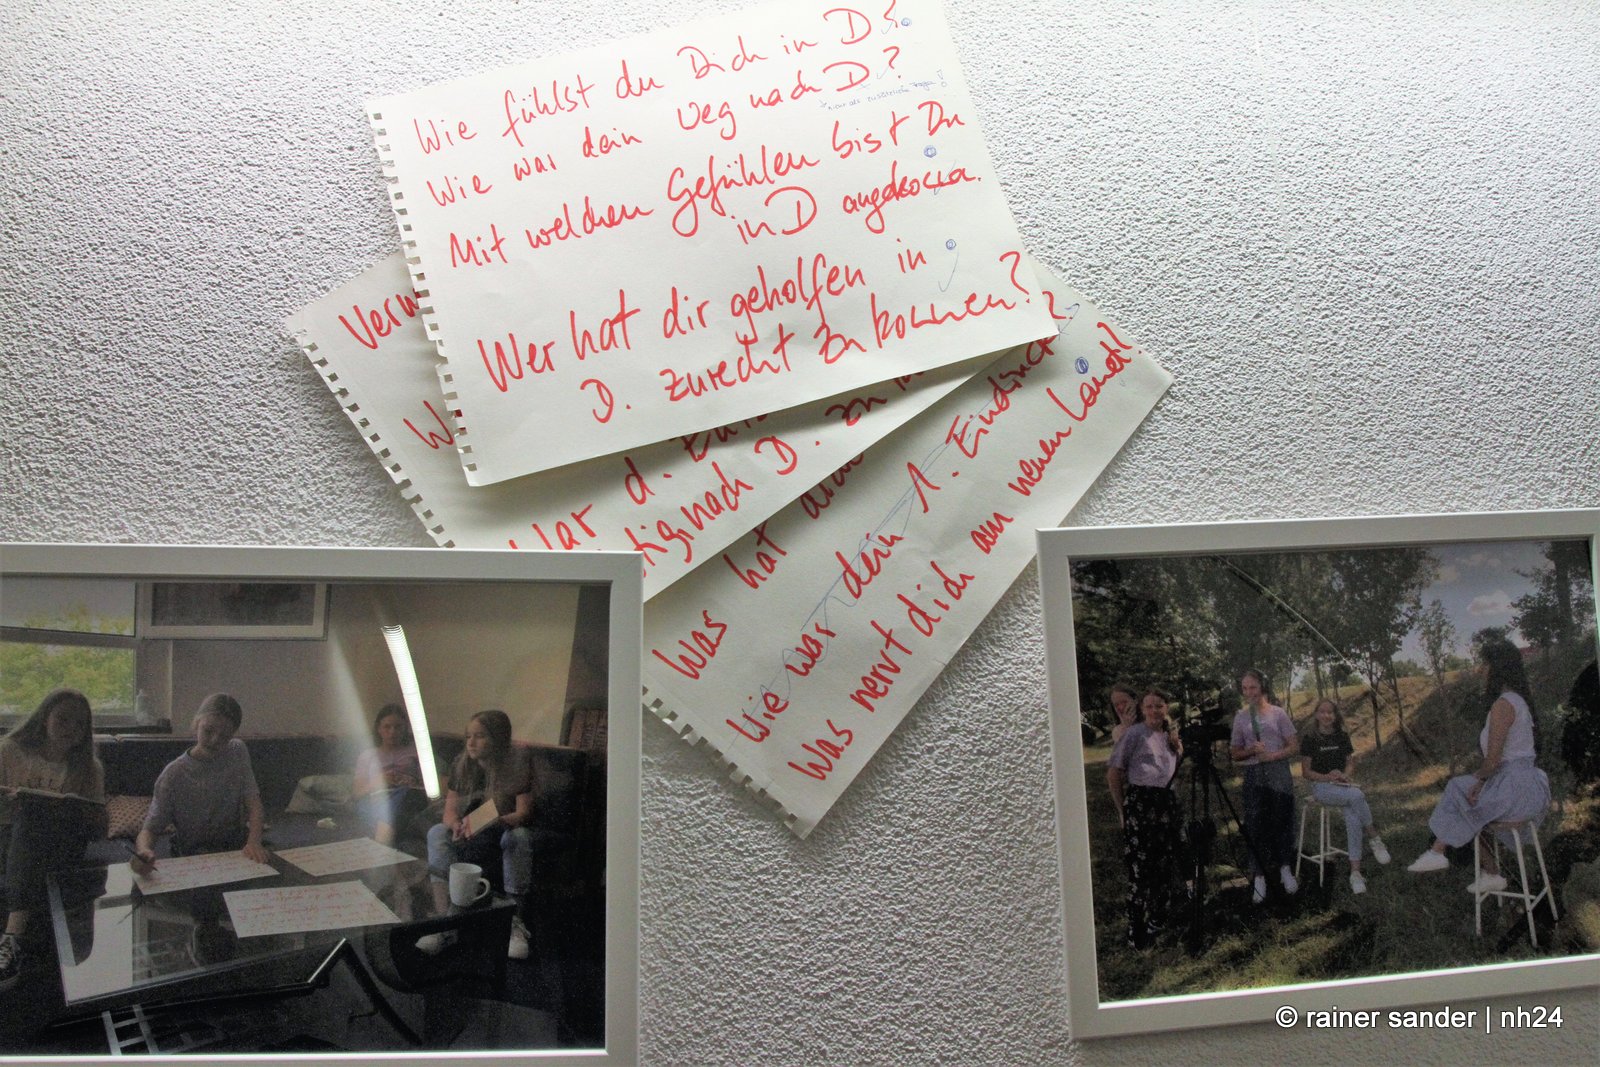 Wie fühlst du Dich in D?
Wie war dein Weg nach D?
Mit welchen Gefühlen bist Du
in D angekomm.
Wer hat dir geholfen in
D. zurecht zu kommen?
Verm
W
War d. Ents
tig nach D. zu k
Was hat dich
Wie war dein 1. Eindruck?
Was nervt dich am neuen Land?
© rainer sander | nh24